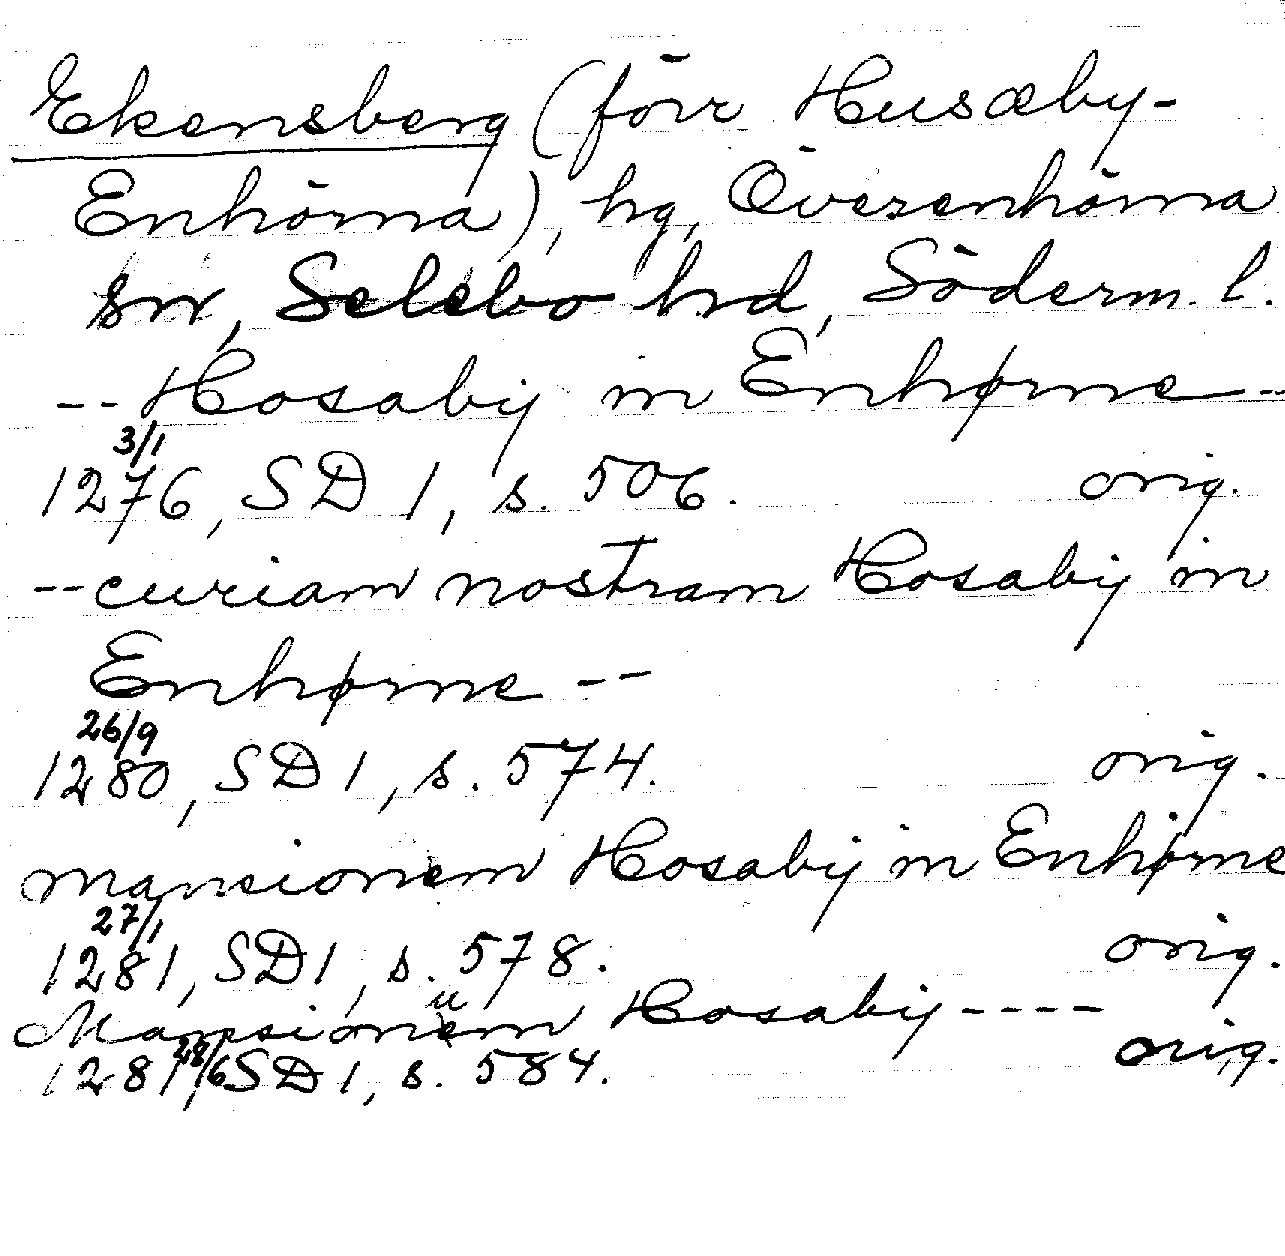 Ekensberg (förr Husæby-
Enhörna), hg, Överenhörna
sn, Selebo hrd, Söderm. l.
-- Hosaby in Enhørne --
3/1
1276, SD 1, s. 506. orig.
-- curiam nostram Hosaby in
Enhørne --
26/9
1280, SD 1, s. 574. orig.
mansionem Hosaby in Enhørne
27/1
1281, SD 1, s. 578. orig.
Mansionem Hosaby ----
1281 28/6 SD 1, s. 584. orig.